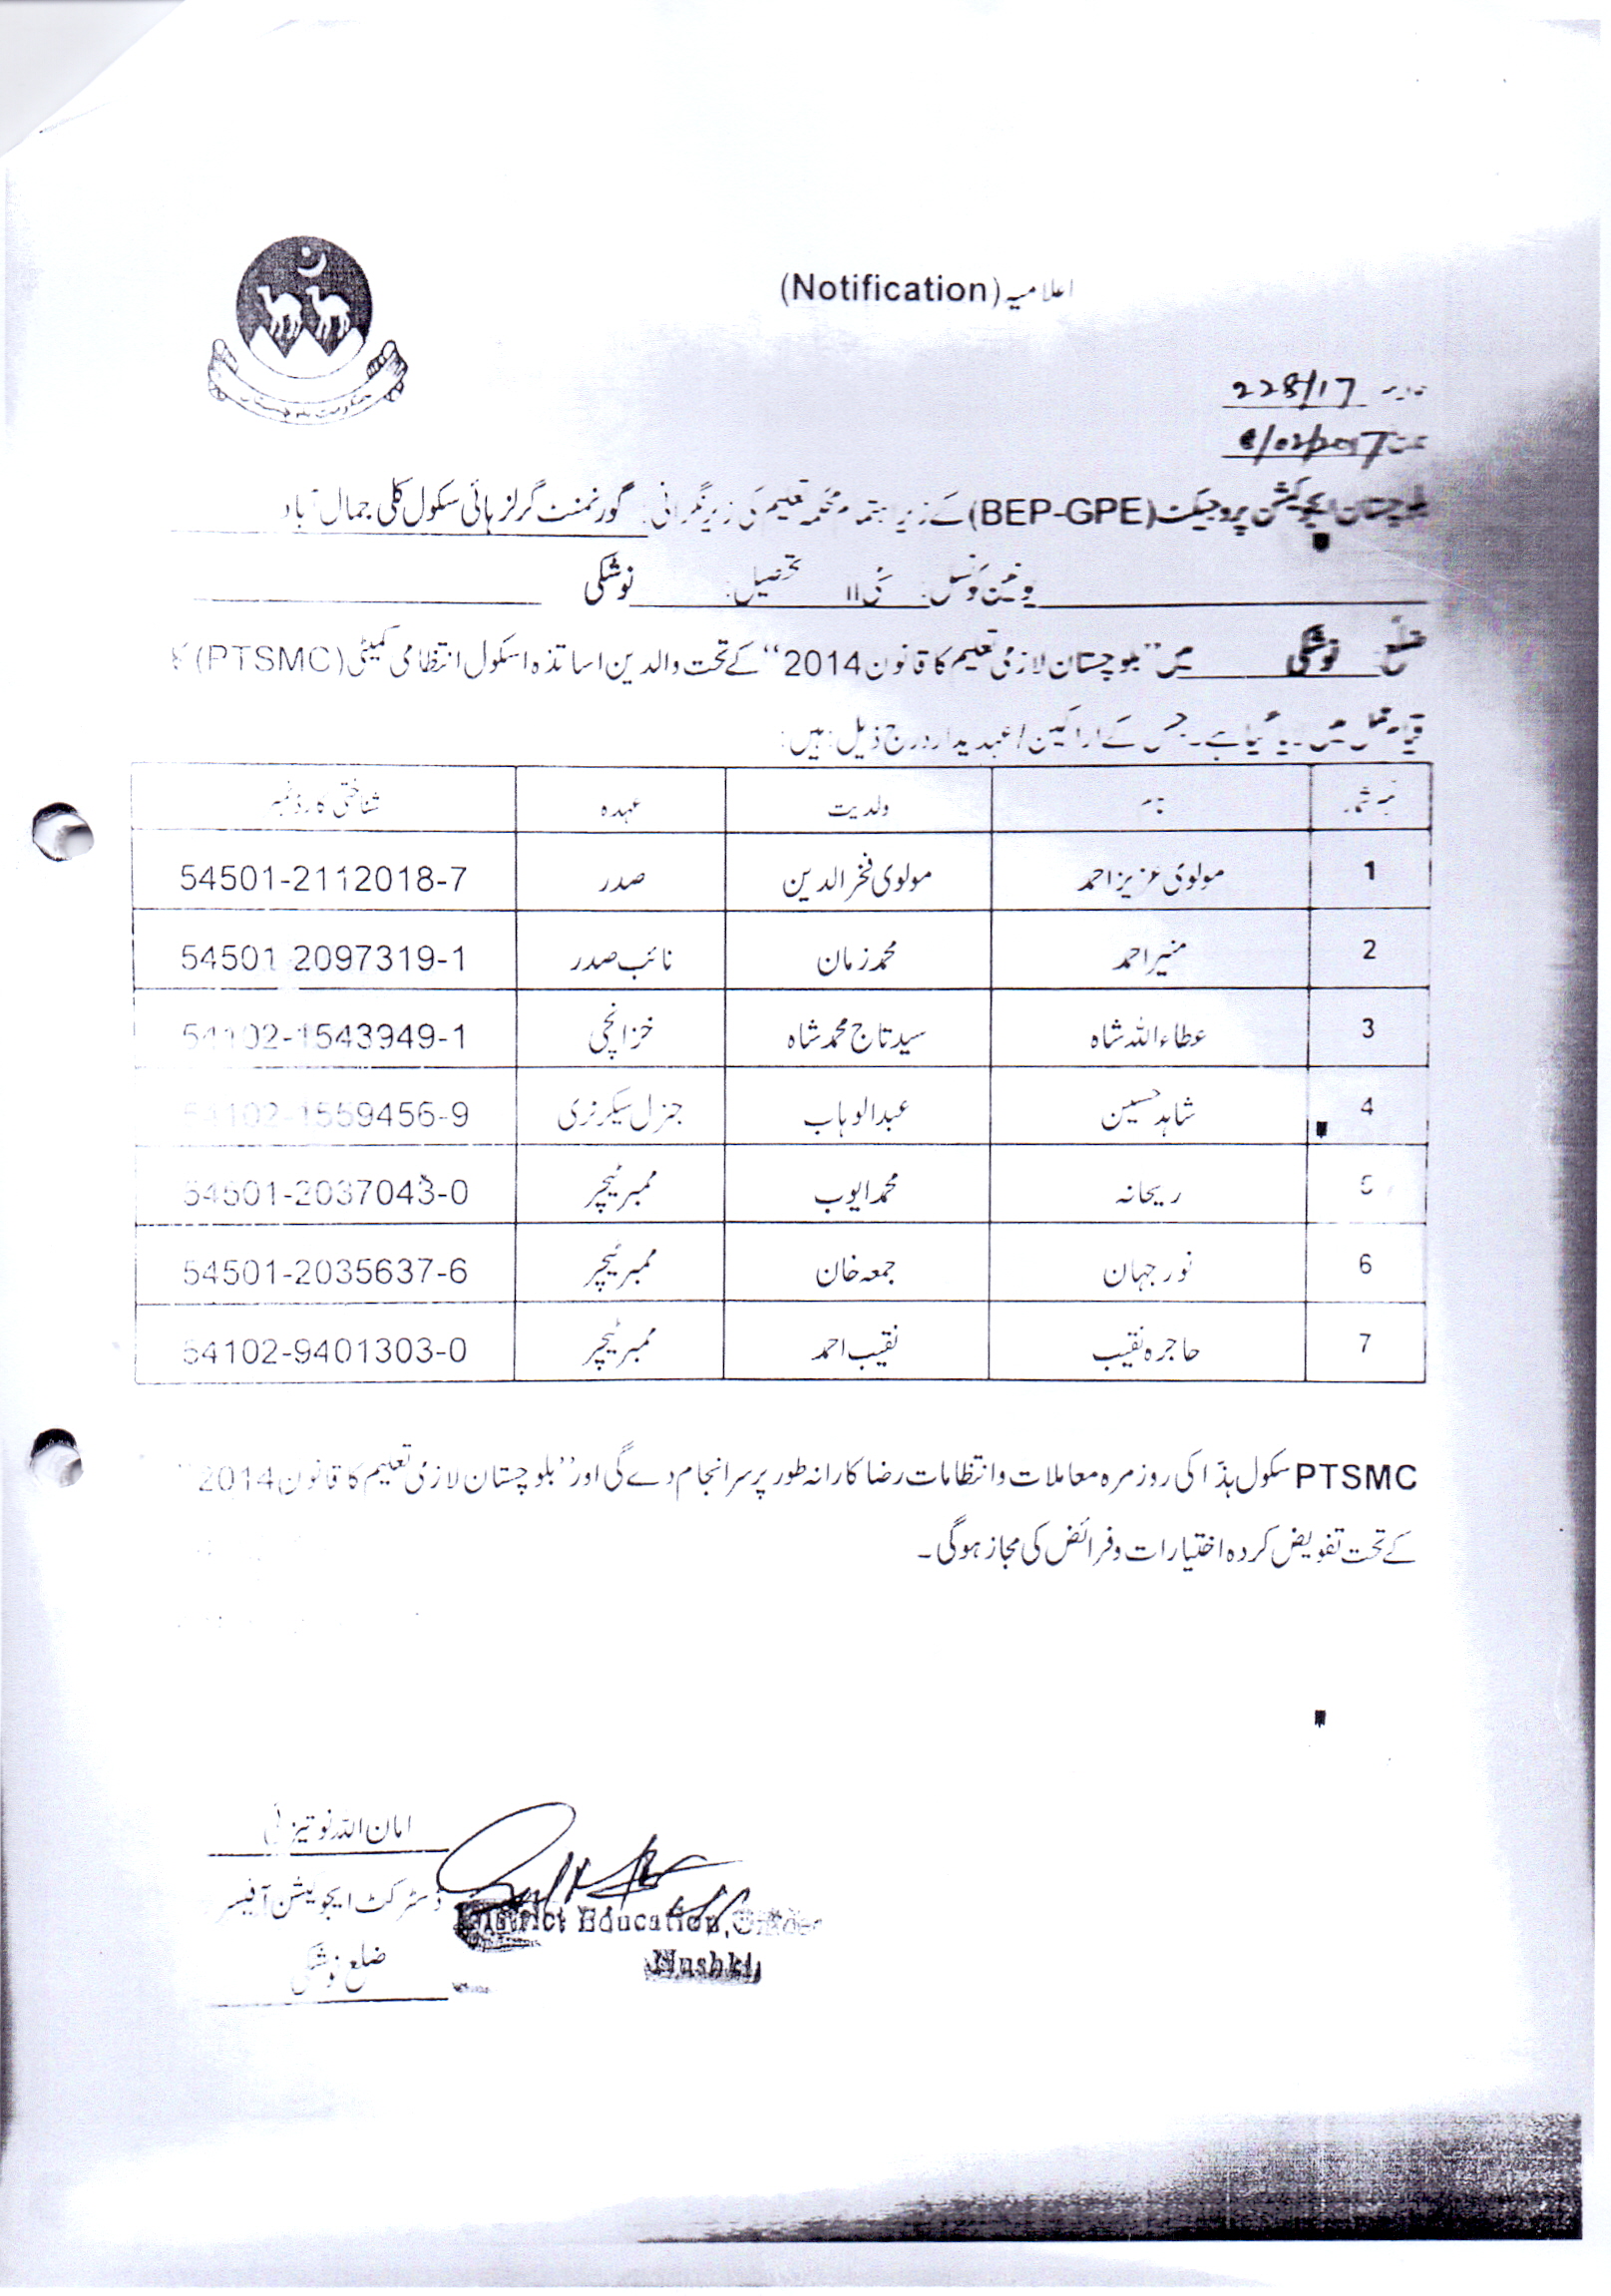 حکومت بلوچستان
اعلامیہ (Notification)
228/17
/02/2017
بلوچستان ایجوکیشن پروجیکٹ (BEP-GPE) کے زیر اہتمام محکمہ تعلیم کی زیر نگرانی: گورنمنٹ گرلز ہائی سکول کلی جمال آباد
یونین کونسل: II تحصیل: نوشکی
ضلع نوشکی میں "بلوچستان لازمی تعلیم کا قانون 2014" کے تحت والدین اساتذہ اسکول انتظامی کمیٹی (PTSMC) کا
قیام عمل میں لایا گیا ہے۔ جس کے اراکین/عہدیدار درج ذیل ہیں:
نمبر شمار نام ولدیت عہدہ شناختی کارڈ نمبر
1 مولوی عزیز احمد مولوی فخر الدین صدر 54501-2112018-7
2 منیر احمد محمد زمان نائب صدر 54501-2097319-1
3 عطاء اللہ شاہ سید تاج محمد شاہ خزانچی 54102-1543949-1
4 شاہد حسین عبدالوہاب جنرل سیکرٹری 54102-1559456-9
5 ریحانہ محمد ایوب ممبر ٹیچر 54501-2037043-0
6 نور جہان جمعہ خان ممبر ٹیچر 54501-2035637-6
7 حاجرہ نقیب نقیب احمد ممبر ٹیچر 54102-9401303-0
PTSMC سکول ہذا کی روز مرہ معاملات و انتظامات رضا کارانہ طور پر سرانجام دے گی اور "بلوچستان لازمی تعلیم کا قانون 2014"
کے تحت تفویض کردہ اختیارات و فرائض کی مجاز ہوگی۔
امان اللہ نوتیزئی
ڈسٹرکٹ ایجوکیشن آفیسر
District Education Officer
ضلع نوشکی
Nushki